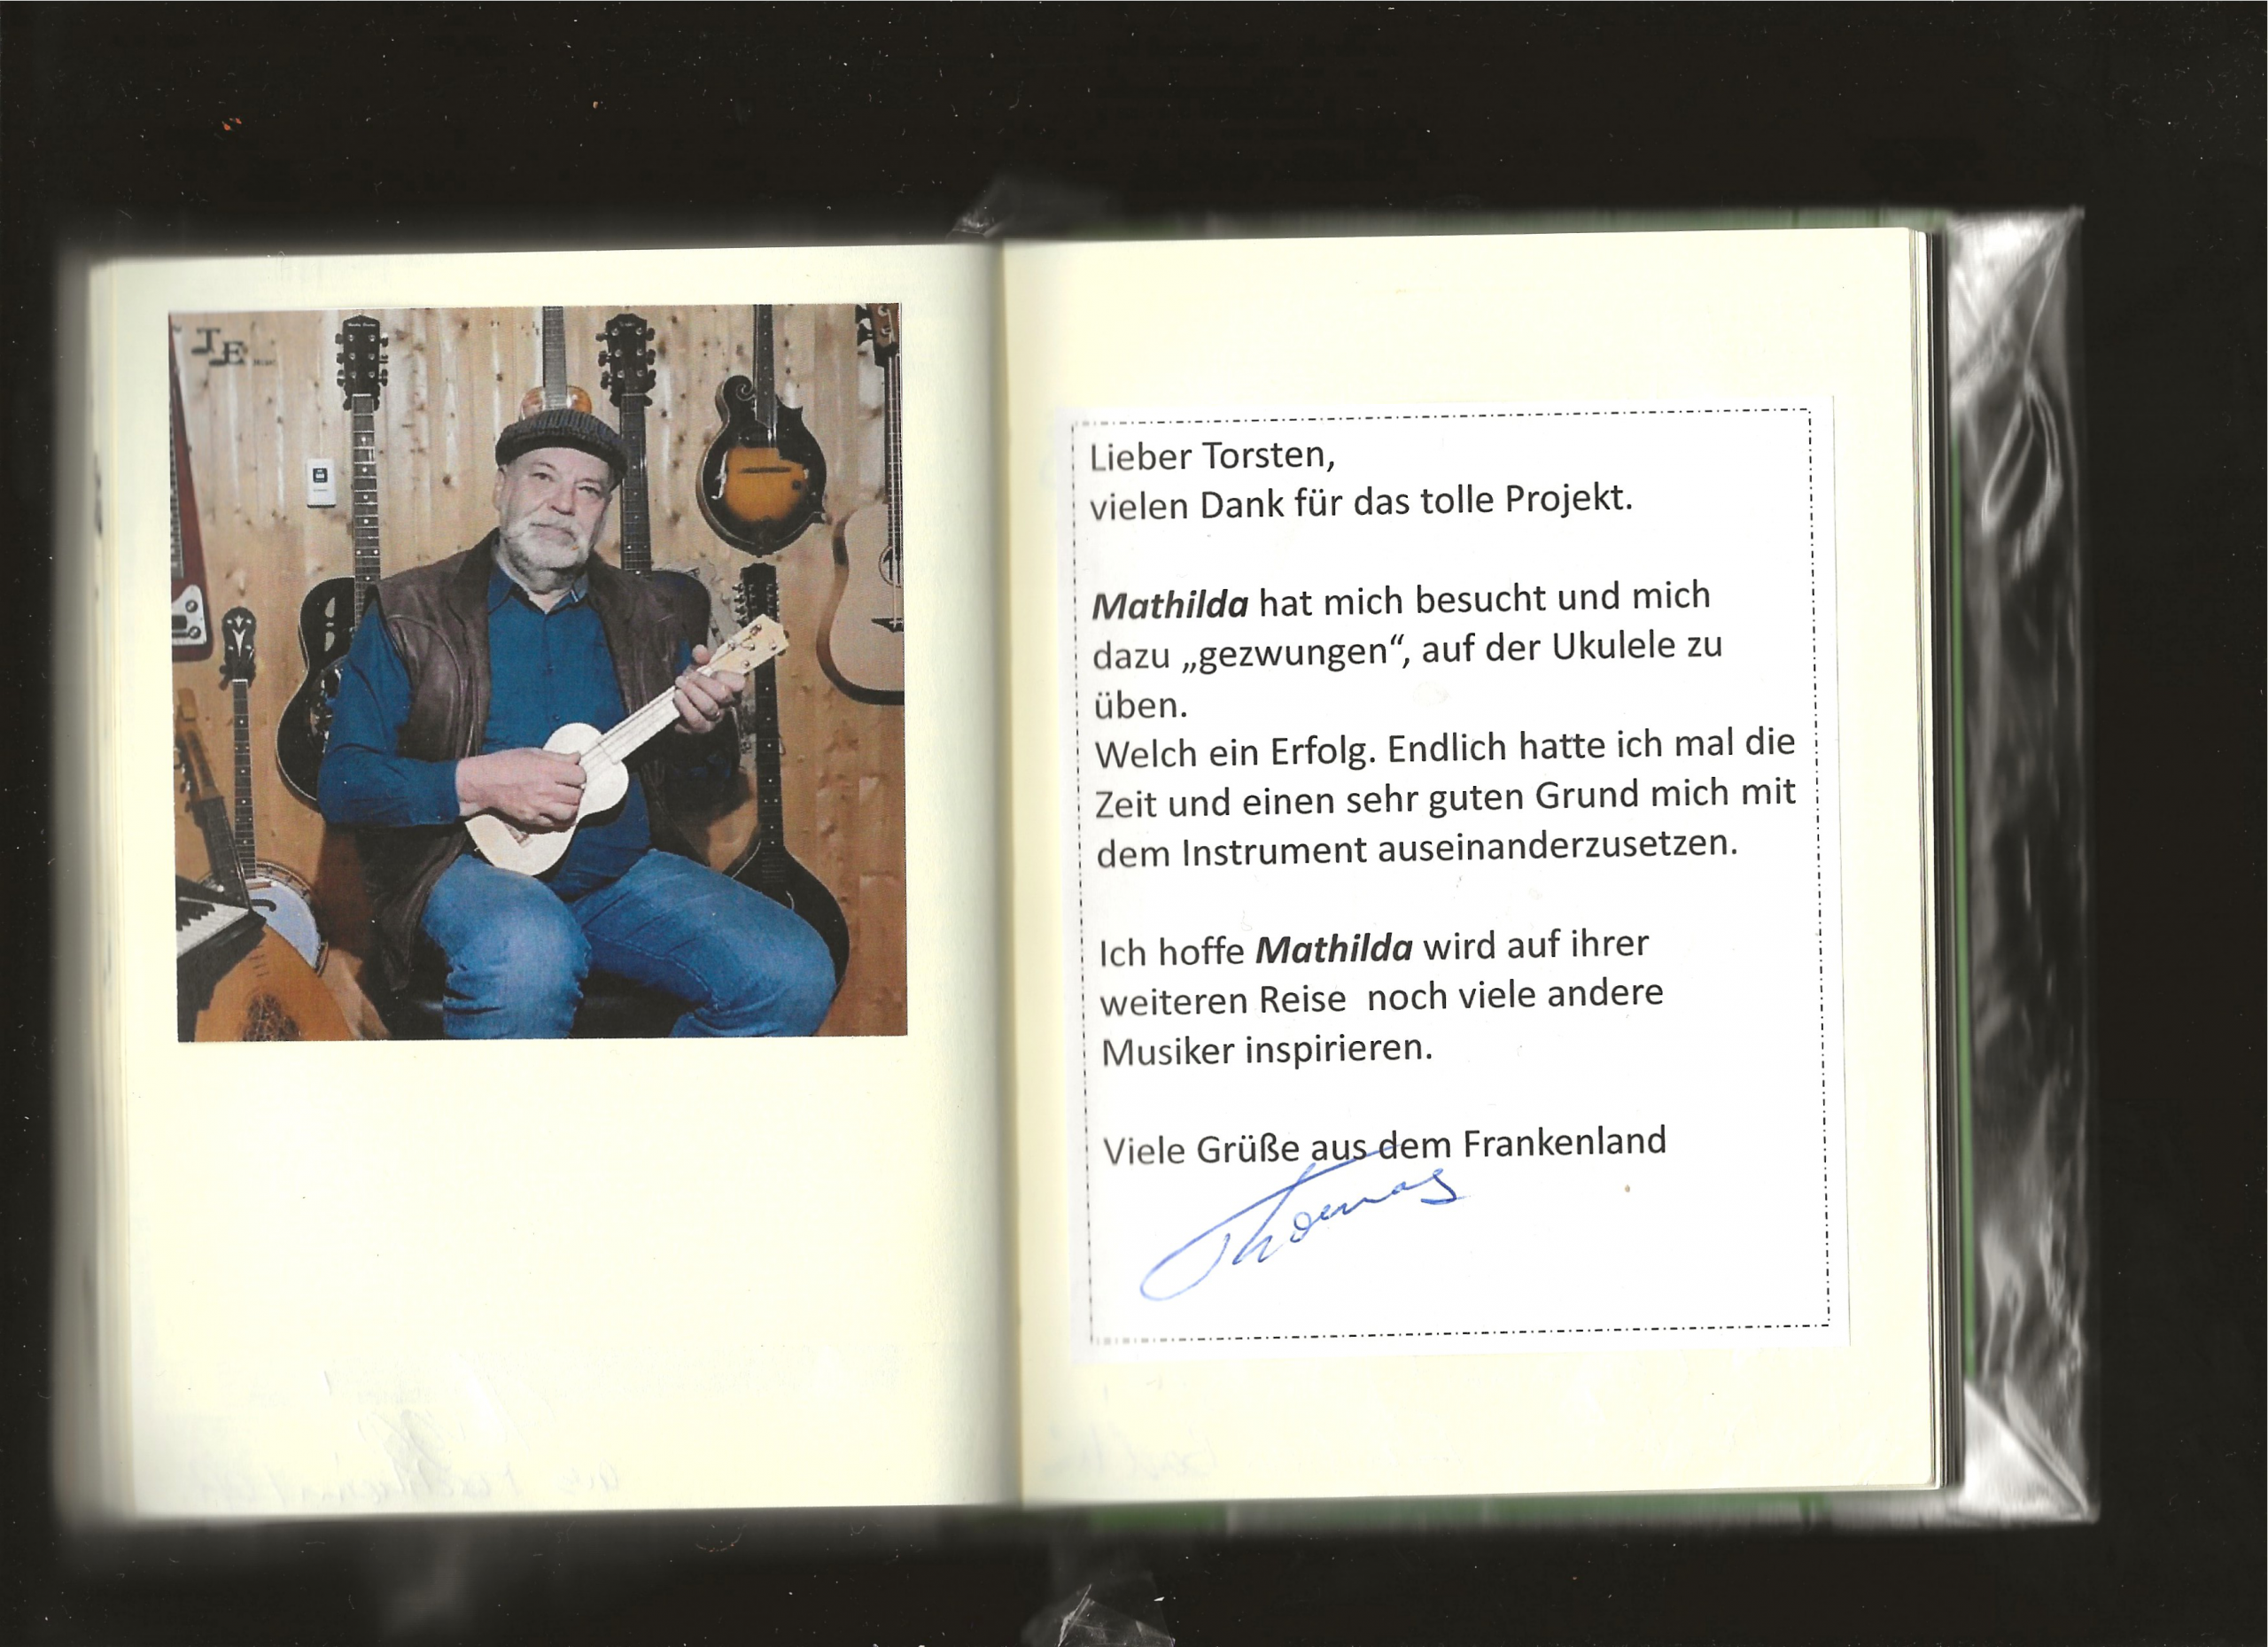 TE
Lieber Torsten,
vielen Dank für das tolle Projekt.
Mathilda hat mich besucht und mich
dazu „gezwungen“, auf der Ukulele zu
üben.
Welch ein Erfolg. Endlich hatte ich mal die
Zeit und einen sehr guten Grund mich mit
dem Instrument auseinanderzusetzen.
Ich hoffe Mathilda wird auf ihrer
weiteren Reise  noch viele andere
Musiker inspirieren.
Viele Grüße aus dem Frankenland
Thomas